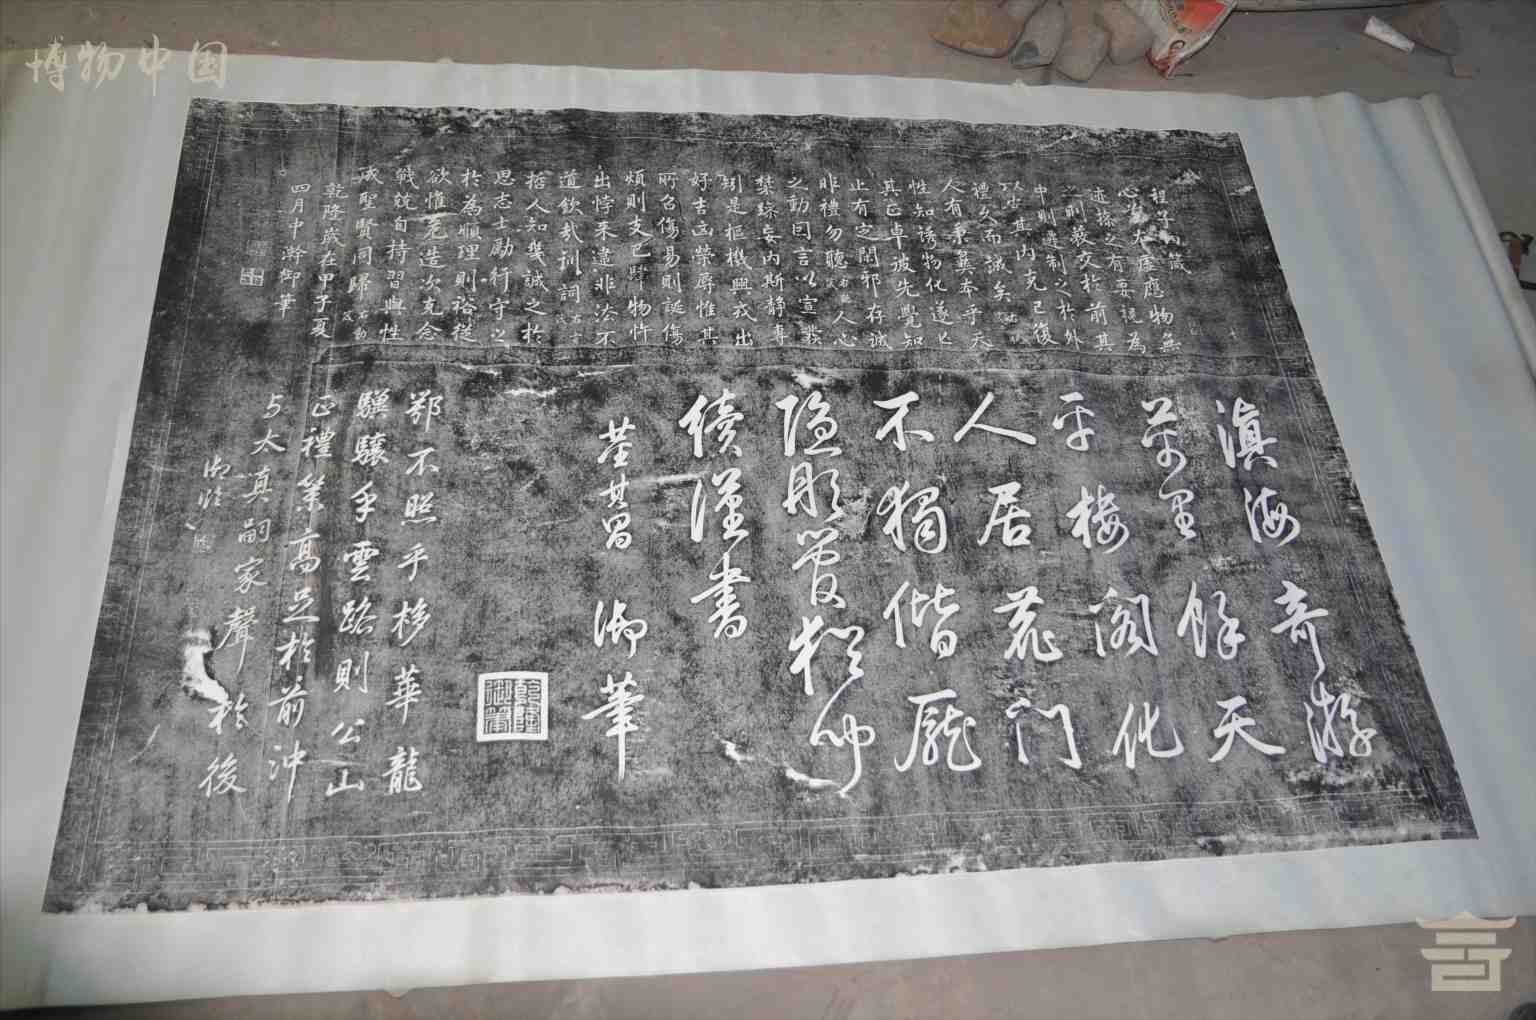 程子四箴
心兮本虛應物無
迹操之有要視為
之則蔽交於前其
中則遷制之於外
以安其內克己復
禮久而誠矣 右視箴
人有秉彝本乎天
性知誘物化遂亡
其正卓彼先覺知
止有定閑邪存誠
非禮勿聽 右聽箴 人心
之動因言以宣發
禁躁妄內斯靜專
矧是樞機興戎出
好吉凶榮辱惟其
所召傷易則誕傷
煩則支己肆物忤
出悖來違非法不
道欽哉訓詞 右言箴
哲人知幾誠之於
思志士勵行守之
於為順理則裕從
欲惟危造次克念
戰兢自持習與性
成聖賢同歸 右動箴
乾隆歲在甲子夏
四月中澣御筆
滇海奇游
萬里餘天
平樓閣化
人居鹿門
不獨偕龐
隐彤管猶聞
續漢書
董其昌 御筆
乾隆御筆
鄂不照乎栘華龍
驥驤乎雲路則公山
正禮業高足於前沖
与太真嗣家聲於後
御臨
博物中国